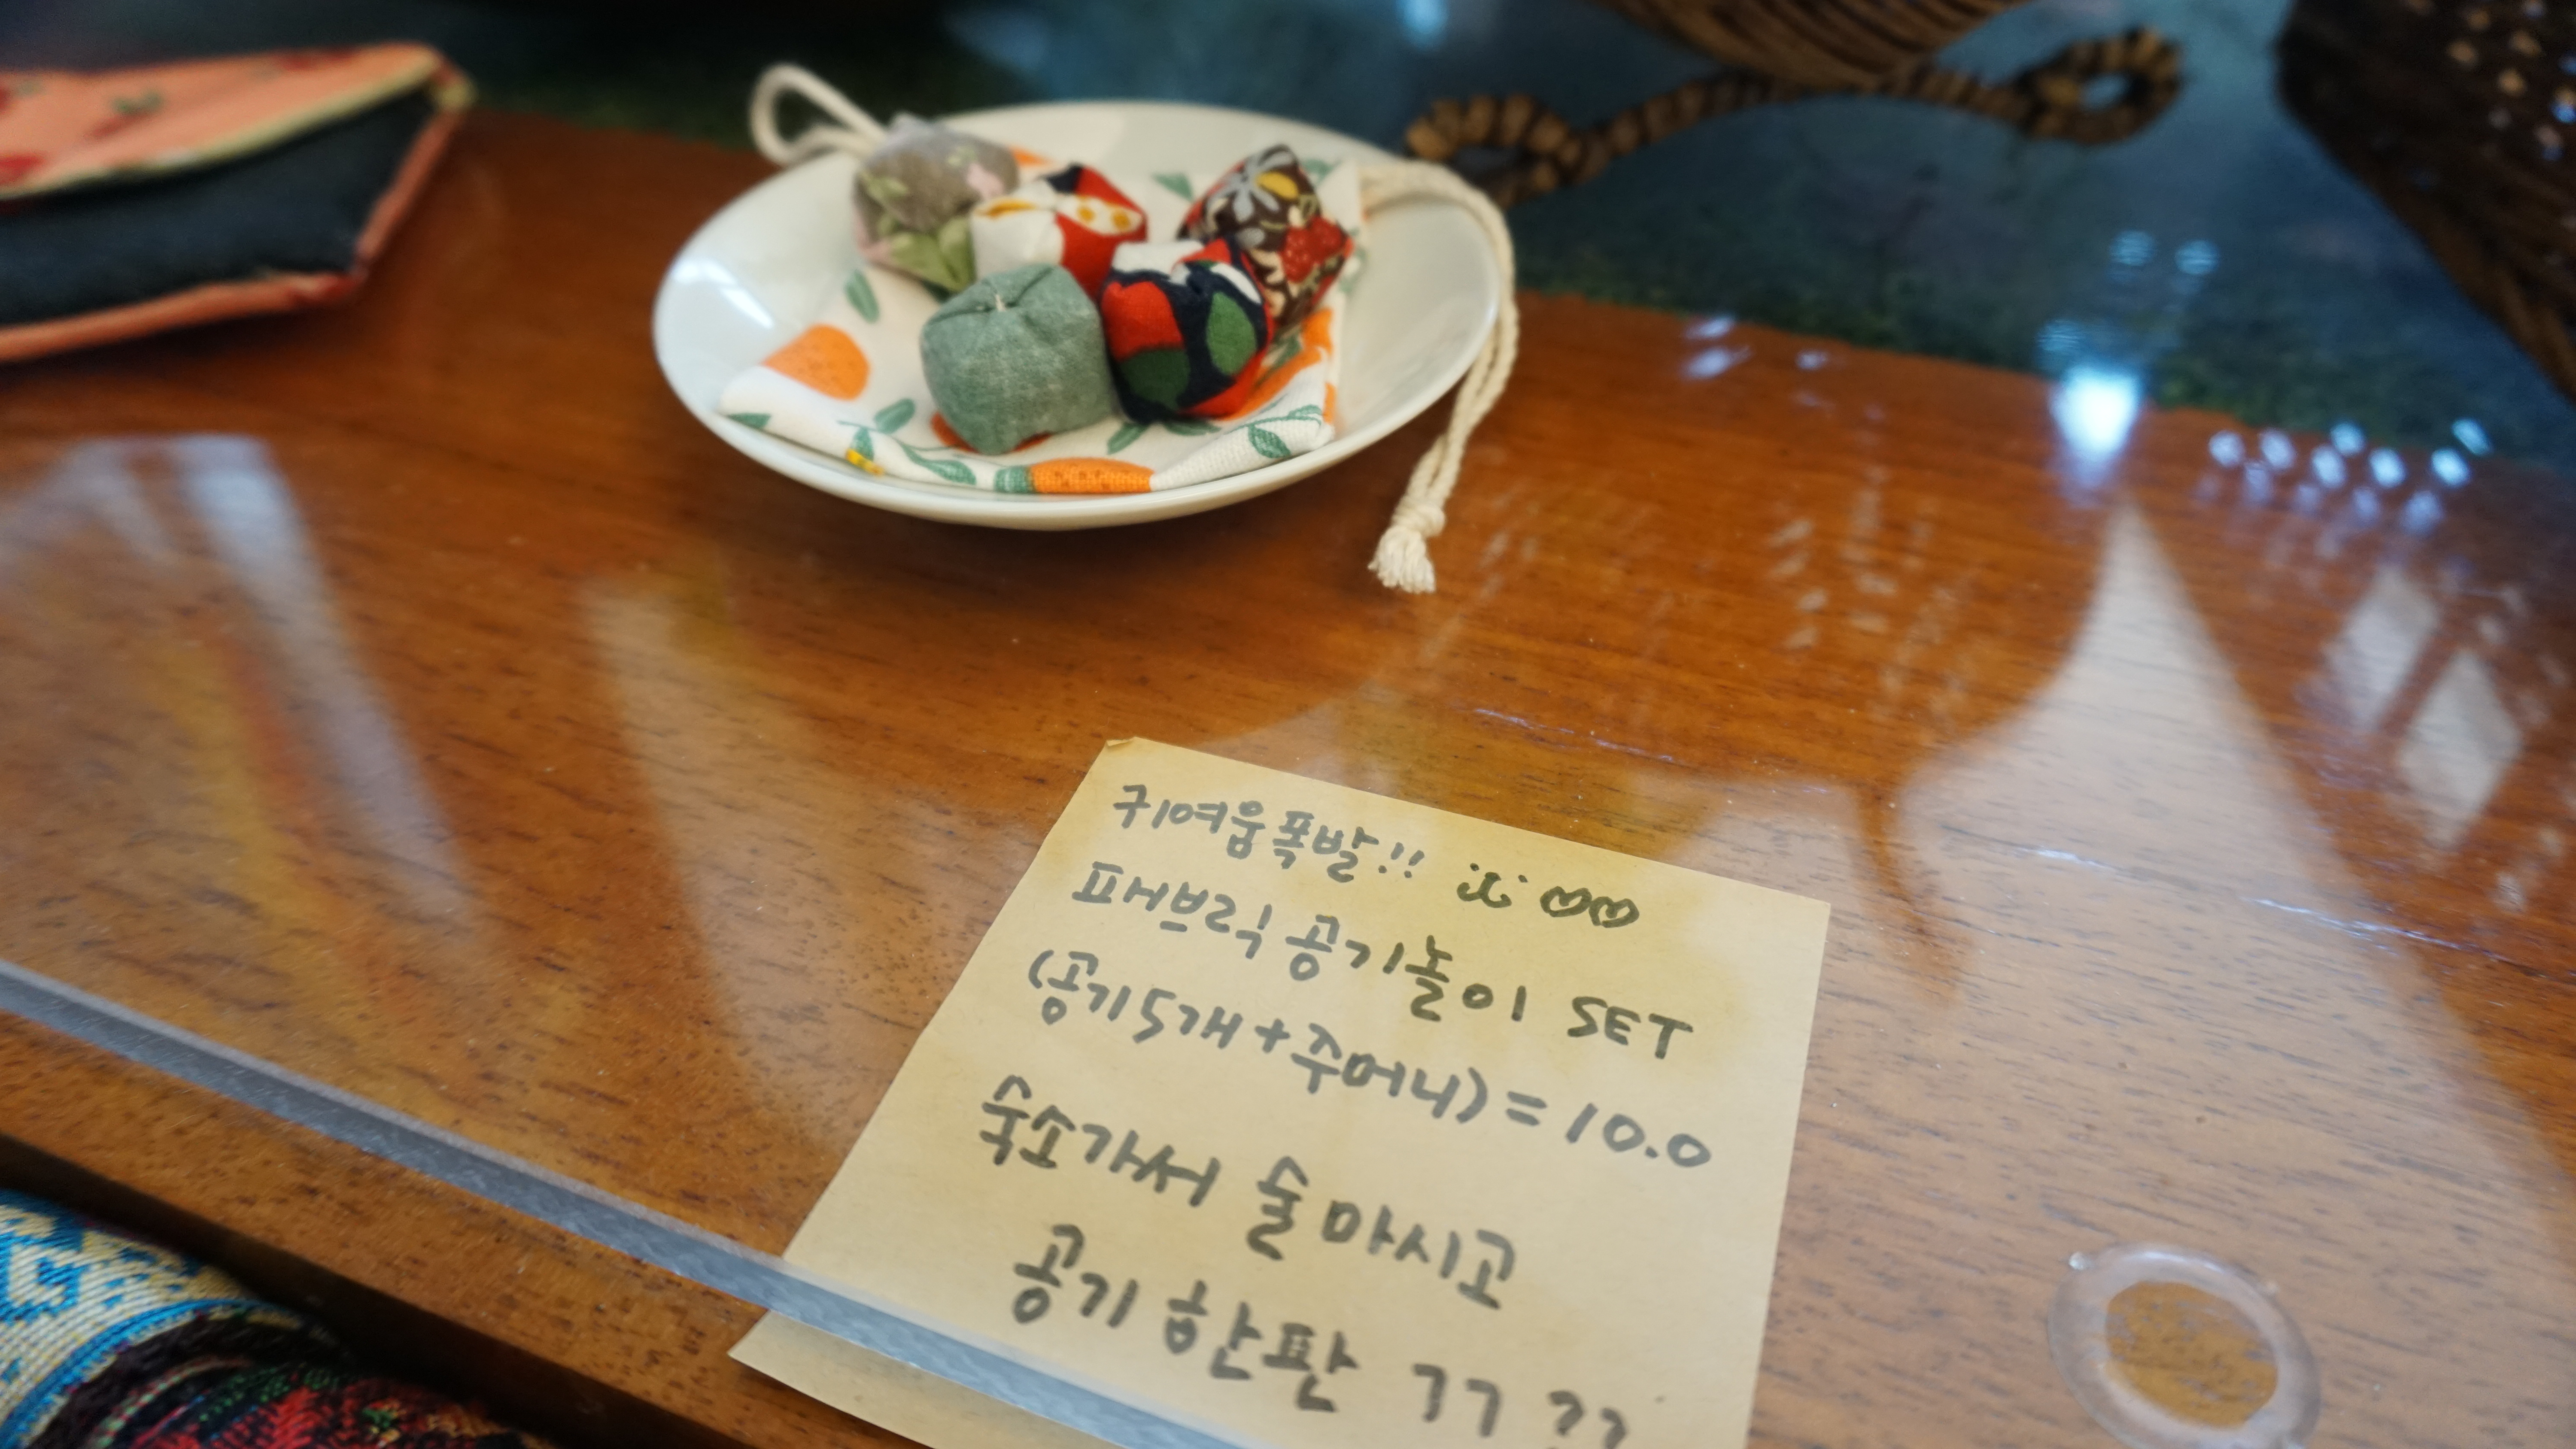 귀여움폭발!!
패브릭 공기놀이 SET
(공기5개+주머니)=10.0
숙소가서 술마시고
공기 한판 ㄱㄱ ??